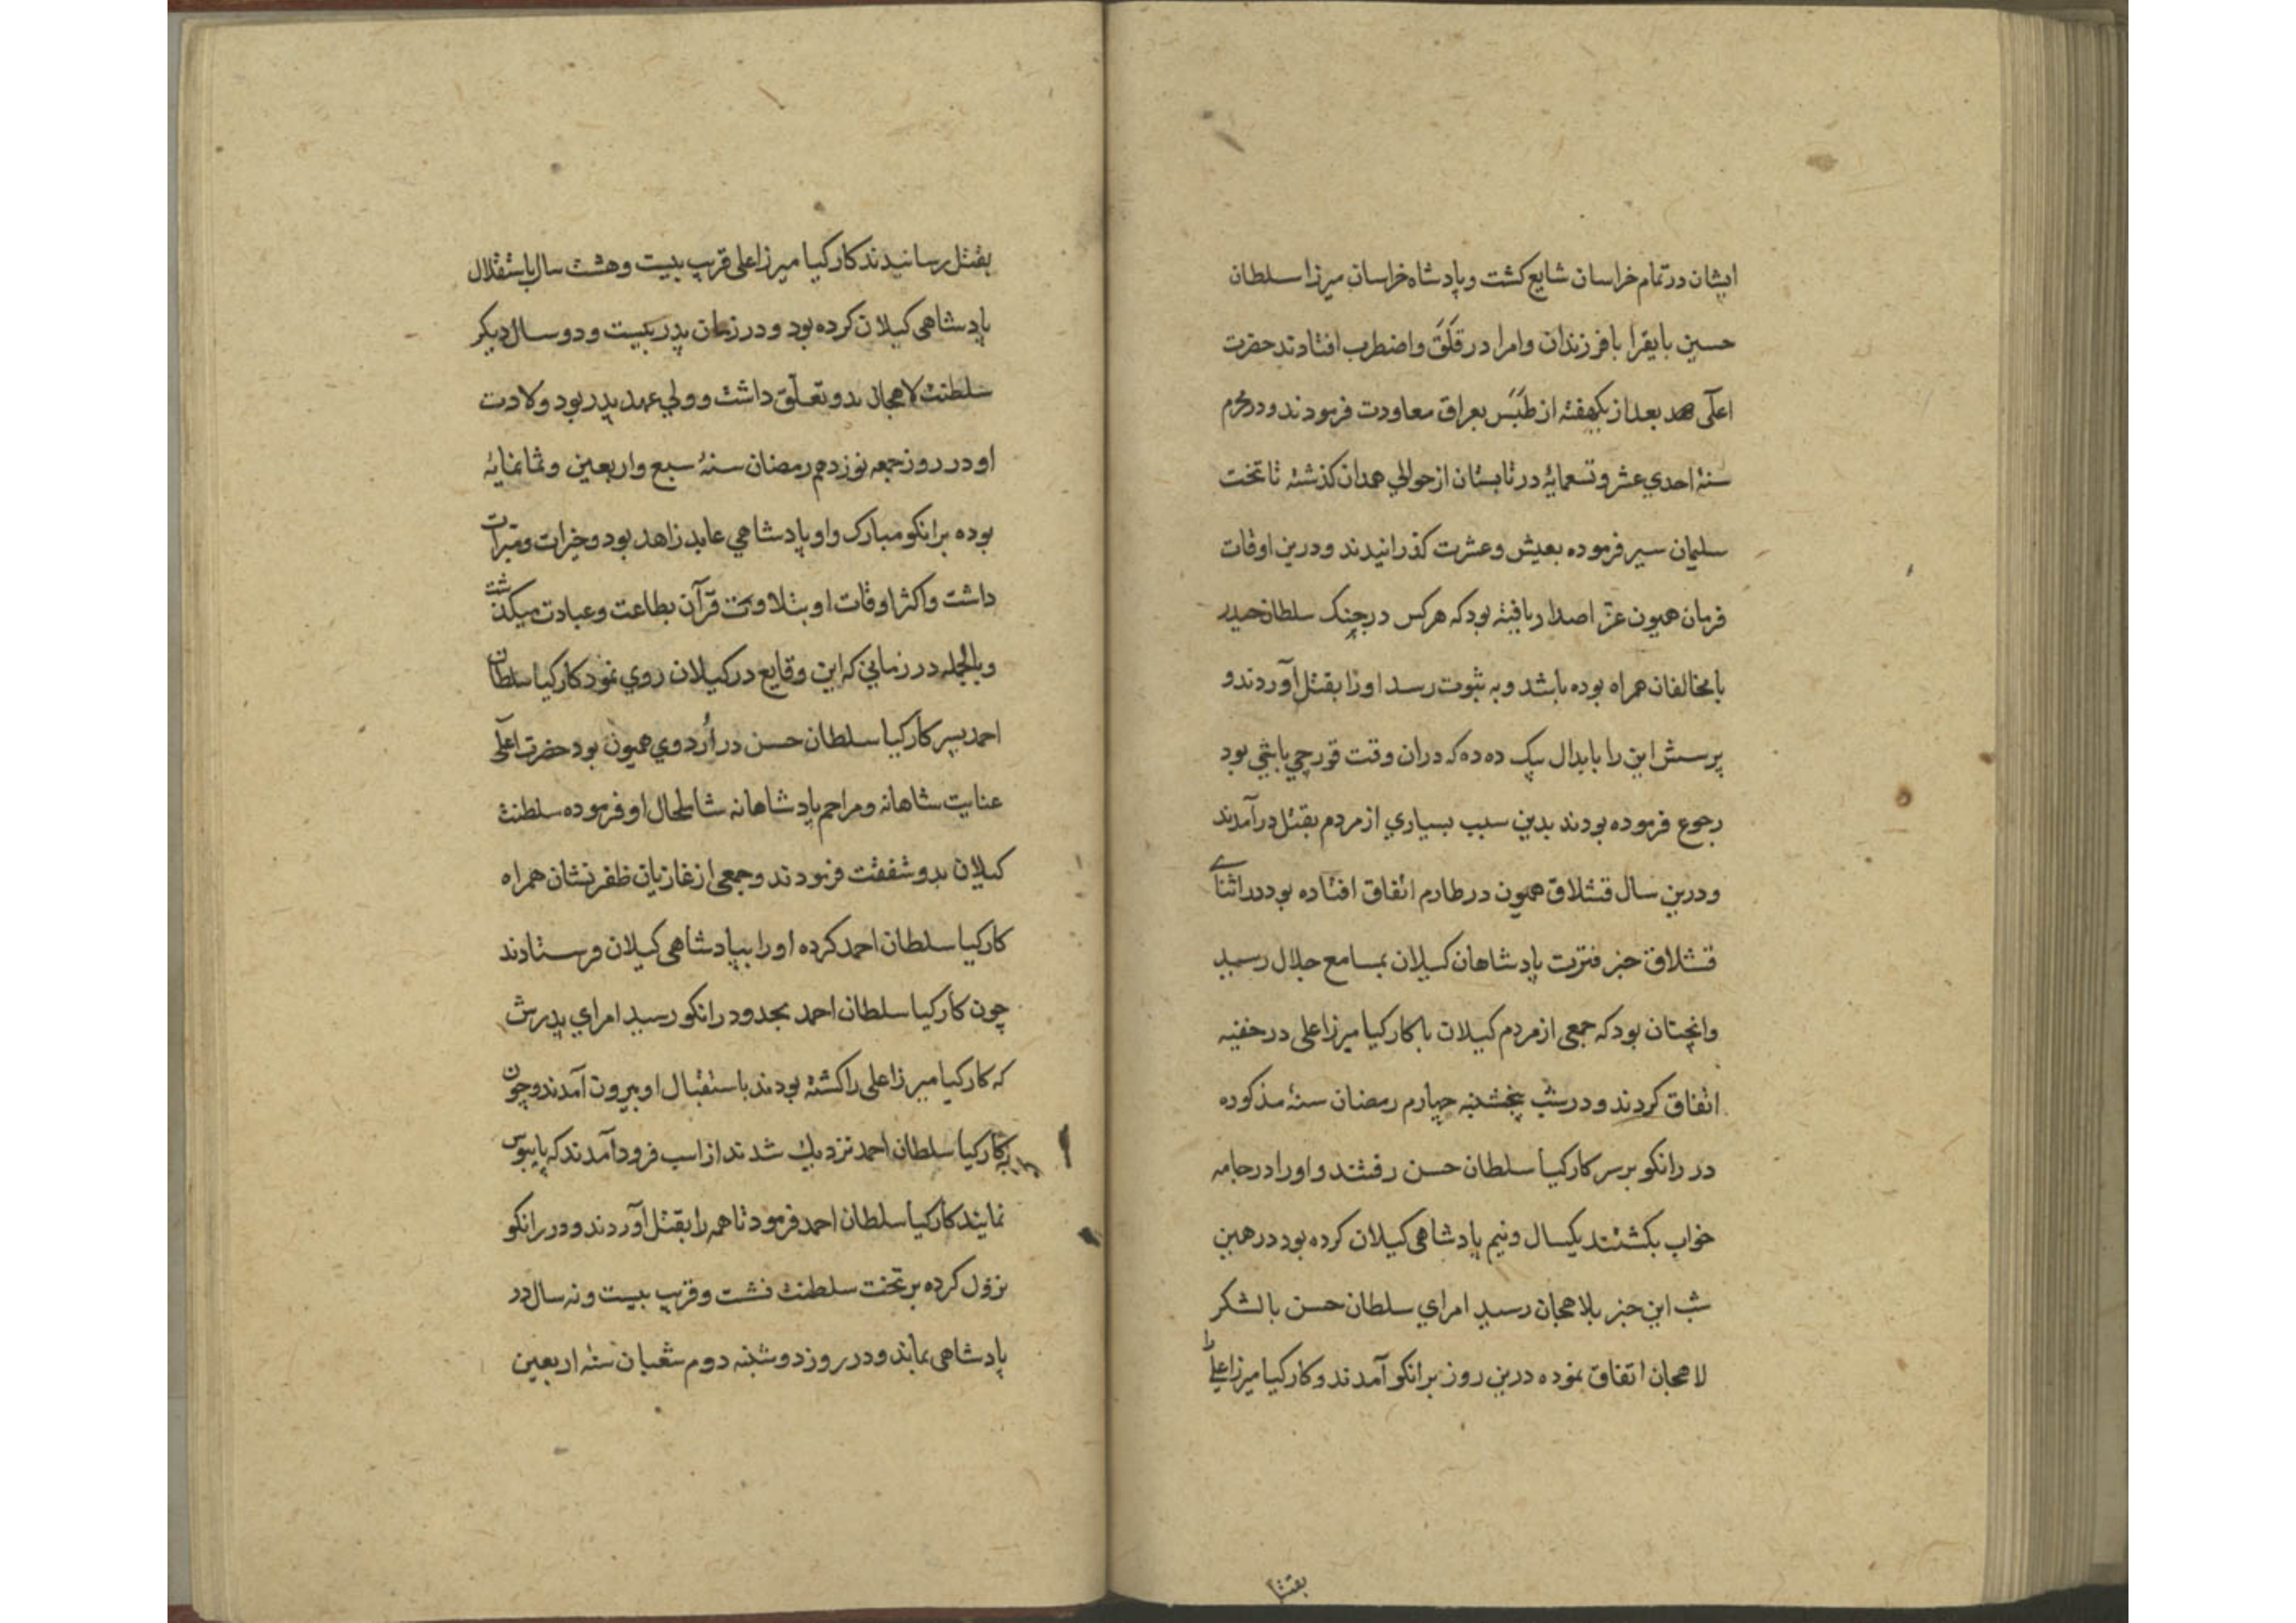 ایشان در تمام خراسان شایع کشت و پادشاه خراسان میرزا سلطان
حسین بایقرا با فرزندان وامرا در قَلَق واضطرب افتادند حضرت
اعلی بعد از یکهفته از طَبَس بعراق معاودت فرمودند و در محرم
سنهٔ احدی عشر و تسعمایهٔ در تابستان از حوالی همدان کذشته تا تخت
سلیمان سیر فرموده بعیش وعشرت کذرانیدند ودرین اوقات
فرمان همیون عزّ اصدار یافته بود که هرکس در جنک سلطان حیدر
با مخالفان همراه بوده باشد و به ثبوت رسد اورا بقتل آوردند و
پرسش این را با بدال بیک ده ده که دران وقت قورچی باشی بود
رجوع فرموده بودند بدین سبب بسیاری از مردم بقتل درآمدند
ودرین سال قشلاق همیون در طارم اتفاق افتاده بود در اثنای
قشلاق خبر فترت پادشاهان کیلان بمسامع جلال رسید
وانچنان بود که جمعی از مردم کیلان با کارکیا میرزا علی در خفیه
اتفاق کردند و در شب پنجشنبه چهارم رمضان سنهٔ مذکوره
در رانکو بر سر کارکیا سلطان حسن رفتند و اورا در جامه
خواب بکشتند یکسال ونیم پادشاهی کیلان کرده بود در همین
شب این خبر بلاهجان رسید امرای سلطان حسن با لشکر
لاهجان اتفاق نموده درین روز برانکو آمدند و کارکیا میرزا علی را
بقتل
بقتل رسانیدند کارکیا میرزا علی قریب بیست وهشت سال باستقلال
پادشاهی کیلان کرده بود و در زمان پدر بیست و دو سال دیکر
سلطنت لاهجان بدو تعلّق داشت و ولی عهد پدر بود ولادت
او در روز جمعه نوزدهم رمضان سنهٔ سبع واربعین وثمانمایهٔ
بوده برانکو مبارک واو پادشاهی عابد زاهد بود وخیرات ومبرات
داشت واکثر اوقات او بتلاوت قرآن بطاعت وعبادت میکذشت
وبالجمله در زمانی که این وقایع در کیلان روی نمود کارکیا سلطان
احمد پسر کارکیا سلطان حسن در اُردوی همیون بود حضرت اعلی
عنایت شاهانه ومراحم پادشاهانه شامل حال او فرموده سلطنت
کیلان بدو شفقت فرمودند وجمعی از غازیان ظفر نشان همراه
کارکیا سلطان احمد کرده اورا بپادشاهی کیلان فرستادند
چون کارکیا سلطان احمد بحدود رانکو رسید امرای پدرش
که کارکیا میرزا علی را کشته بودند باستقبال او بیرون آمدند و چون
بکارکیا سلطان احمد نزدیك شدند از اسب فرود آمدند که پایبوس
نمایند کارکیا سلطان احمد فرمود تا همه را بقتل آوردند و در رانکو
نزول کرده بر تخت سلطنت نشست وقریب بیست ونه سال در
پادشاهی بماند ودر روز دوشنبه دوم شعبان سنه اربعین